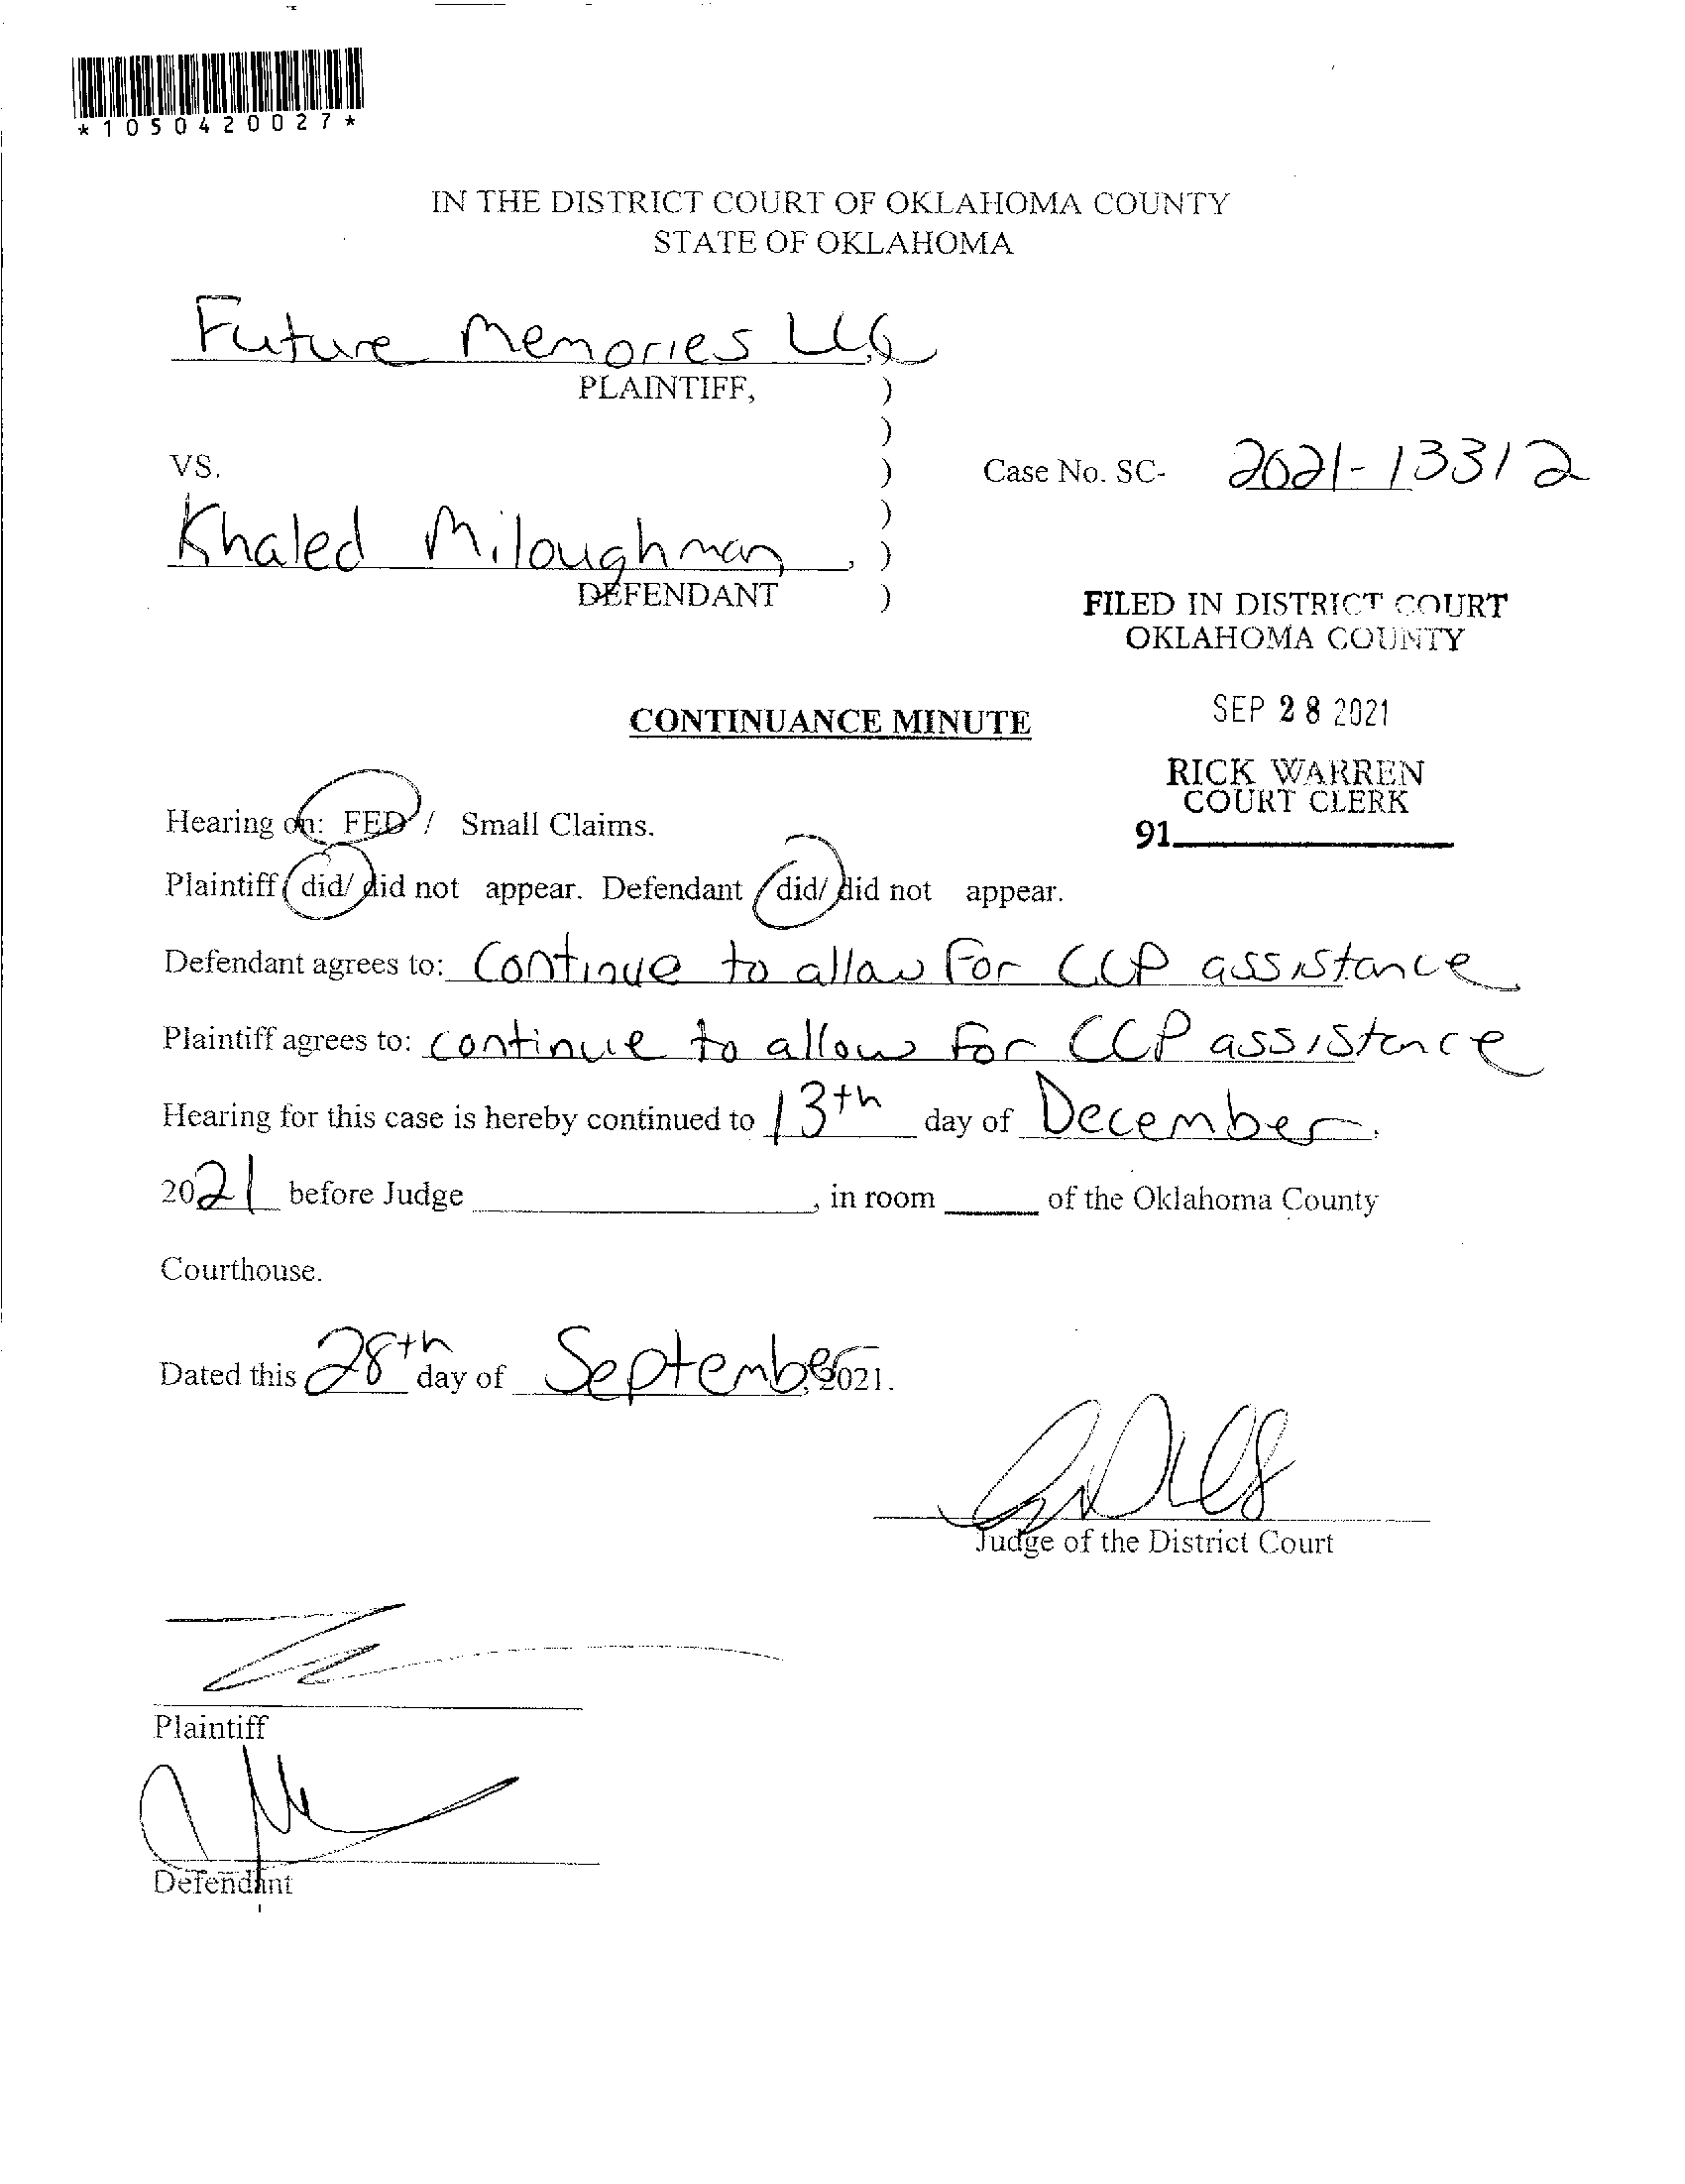 *1050420027*
IN THE DISTRICT COURT OF OKLAHOMA COUNTY
STATE OF OKLAHOMA
Future Memories LLC,
PLAINTIFF, )
)
VS. ) Case No. SC- 2021-13312
)
Khaled Miloughman, )
DEFENDANT )
FILED IN DISTRICT COURT
OKLAHOMA COUNTY
CONTINUANCE MINUTE
SEP 28 2021
RICK WARREN
COURT CLERK
91
Hearing on: FED / Small Claims.
Plaintiff did/ did not appear. Defendant did/ did not appear.
Defendant agrees to: Continue to allow For CCP assistance
Plaintiff agrees to: continue to allow for CCP assistance
Hearing for this case is hereby continued to 13th day of December,
2021 before Judge , in room of the Oklahoma County
Courthouse.
Dated this 28th day of September, 2021.
Judge of the District Court
Plaintiff
Defendant